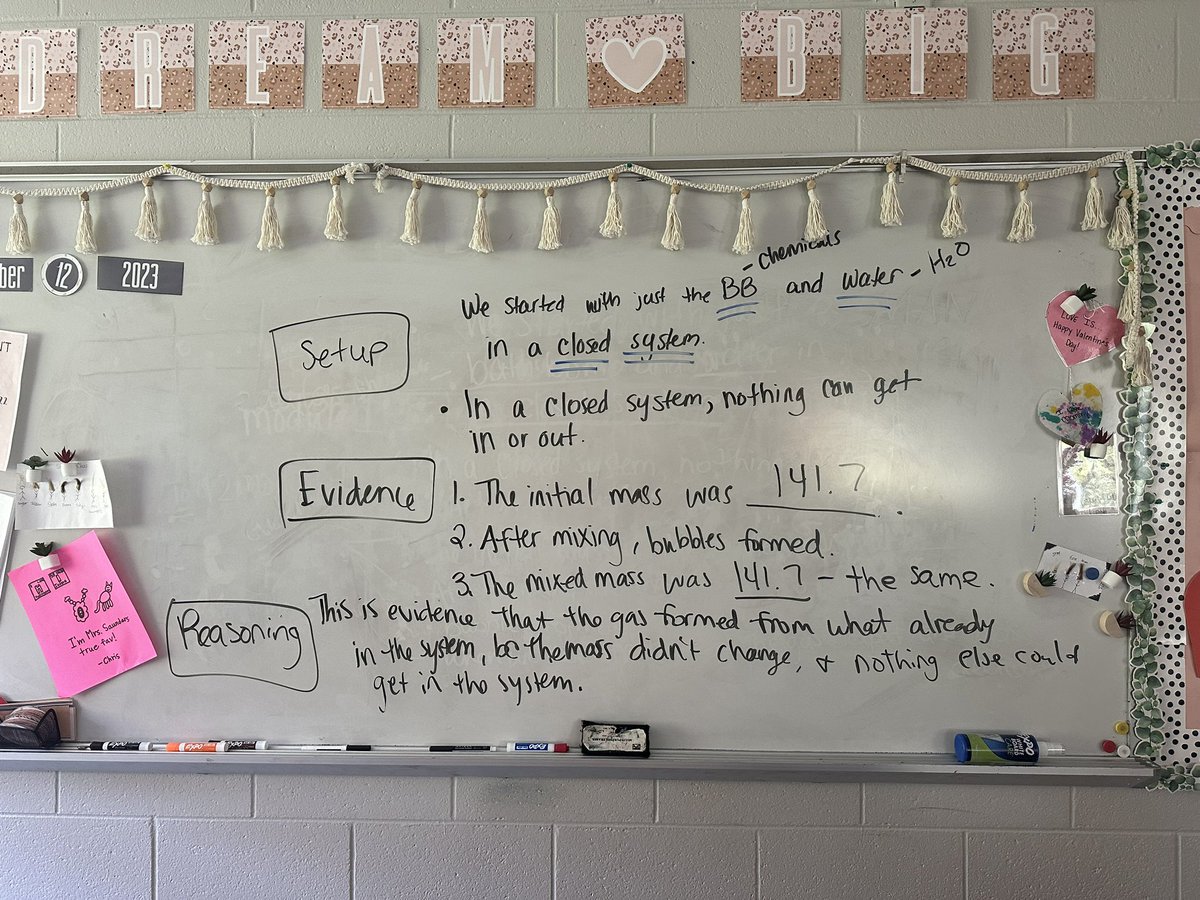 DREAM BIG
ber 12 2023
- Chemicals
We started with just the BB and water - H2O
Setup
in a closed system.
• In a closed system, nothing can get
in or out.
Evidence
1. The initial mass was 141.7.
2. After mixing, bubbles formed.
3. The mixed mass was 141.7 - the same.
Reasoning
This is evidence that the gas formed from what already
in the system, bc the mass didn't change, & nothing else could
get in the system.
LOVE IS...
Happy Valentines
Day!
I'm Mrs. Saunders
true fav!
-Chris
EXPO